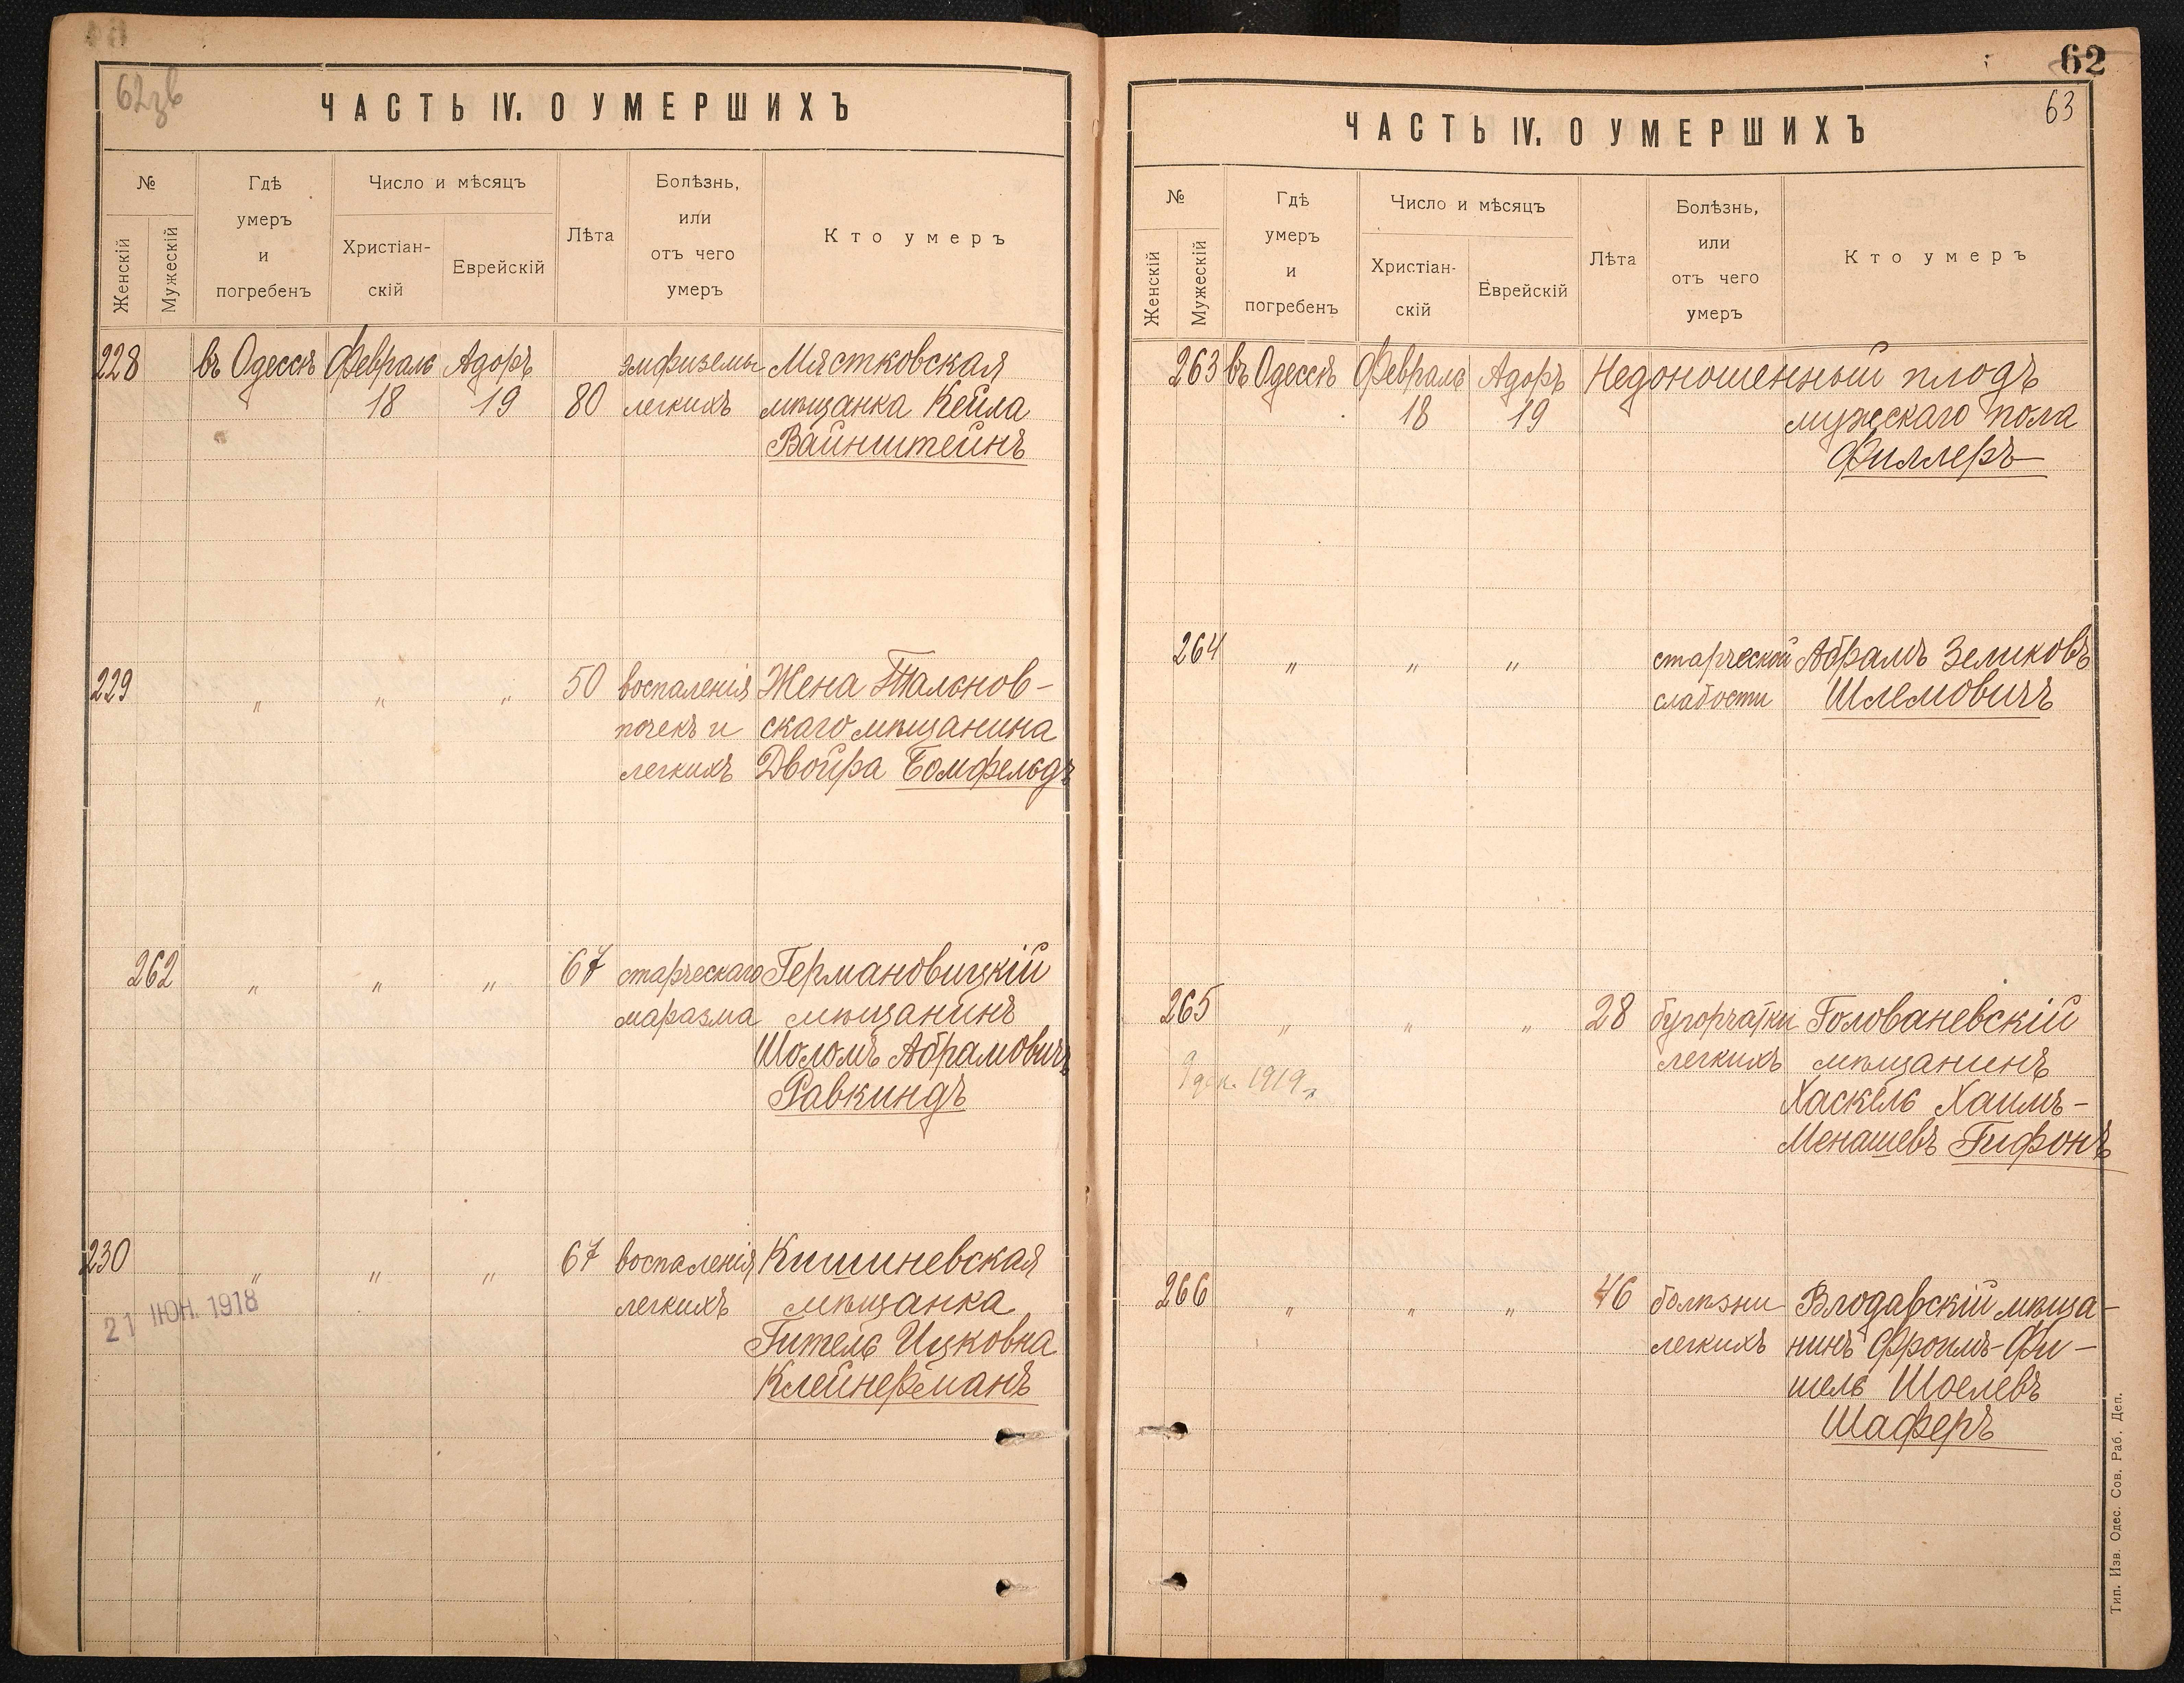 62зв
ЧАСТЬ IV. О УМЕРШИХЪ
№
Женскій
Мужескій
Гдѣ
умеръ
и
погребенъ
Число и мѣсяцъ
Христіан-
скій
Еврейскій
Лѣта
Болѣзнь,
или
отъ чего
умеръ
Кто умеръ
228 въ Одессѣ Февраль Адоръ эмфиземы Мястковская
18 19 80 легкихъ мѣщанка Кейла
Вайнштейнъ
229 " " " 50 воспаленія Жена Тальнов-
почекъ и скаго мѣщанина
легкихъ Двойра Бомфельдъ
262 " " " 67 старческаго Германовицкій
маразма мѣщанинъ
Шоломъ Абрамовичъ
Равкиндъ
230 " " " 67 воспаленія Кишиневская
21 ІЮН. 1918 легкихъ мѣщанка
Гитель Ицковна
Клейнерманъ
62
63
ЧАСТЬ IV. О УМЕРШИХЪ
№
Женскій
Мужескій
Гдѣ
умеръ
и
погребенъ
Число и мѣсяцъ
Христіан-
скій
Еврейскій
Лѣта
Болѣзнь,
или
отъ чего
умеръ
Кто умеръ
263 въ Одессѣ Февраль Адоръ Недоношенный плодъ
18 19 мужескаго пола
Филлеръ
264 " " " старческой Абрамъ Зеликовъ
слабости Шлемовичъ
265 " " " 28 бугорчатки Голованевскій
легкихъ мѣщанинъ
9 дек. 1919 г.
Хаскель Хаимъ-
Менашевъ Гифонъ
266 " " " 46 болѣзни Влодавскій мѣща-
легкихъ нинъ Фроимъ-Фи-
шель Шоелевъ
Шаферъ
Тип. Изв. Одес. Сов. Раб. Деп.